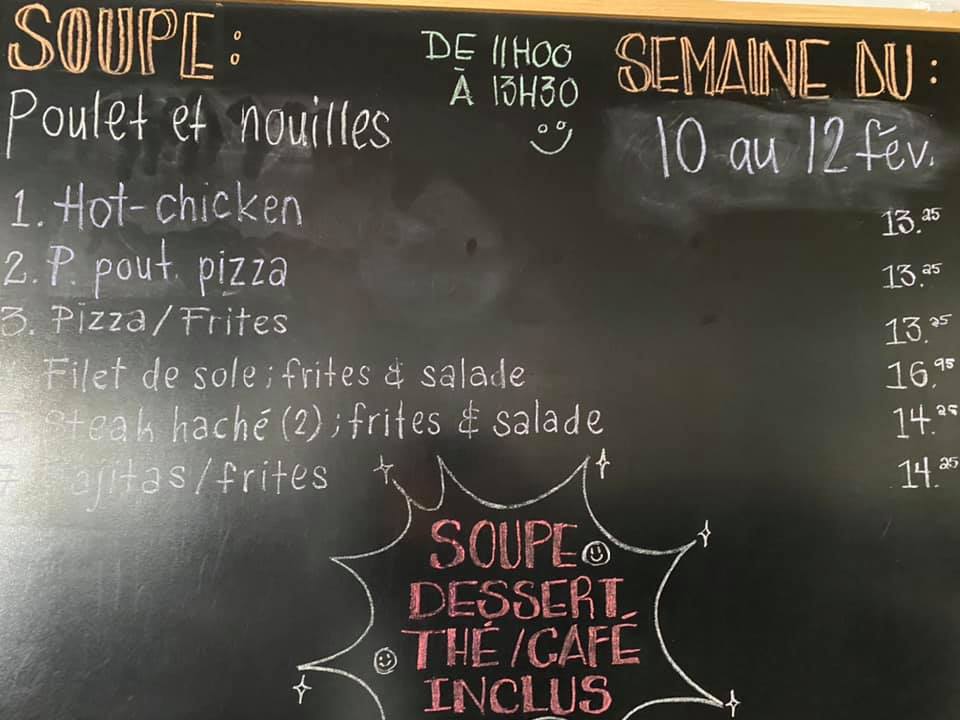 SOUPE:
DE 11H00
À 13H30
SEMAINE DU:
Poulet et nouilles
10 au 12 fév.
1. Hot-chicken 13.25
2. P. pout. pizza 13.25
3. Pizza/Frites 13.25
Filet de sole; frites & salade 16.95
Steak haché (2); frites & salade 14.25
Fajitas/frites 14.25
SOUPE
DESSERT
THÉ/CAFÉ
INCLUS